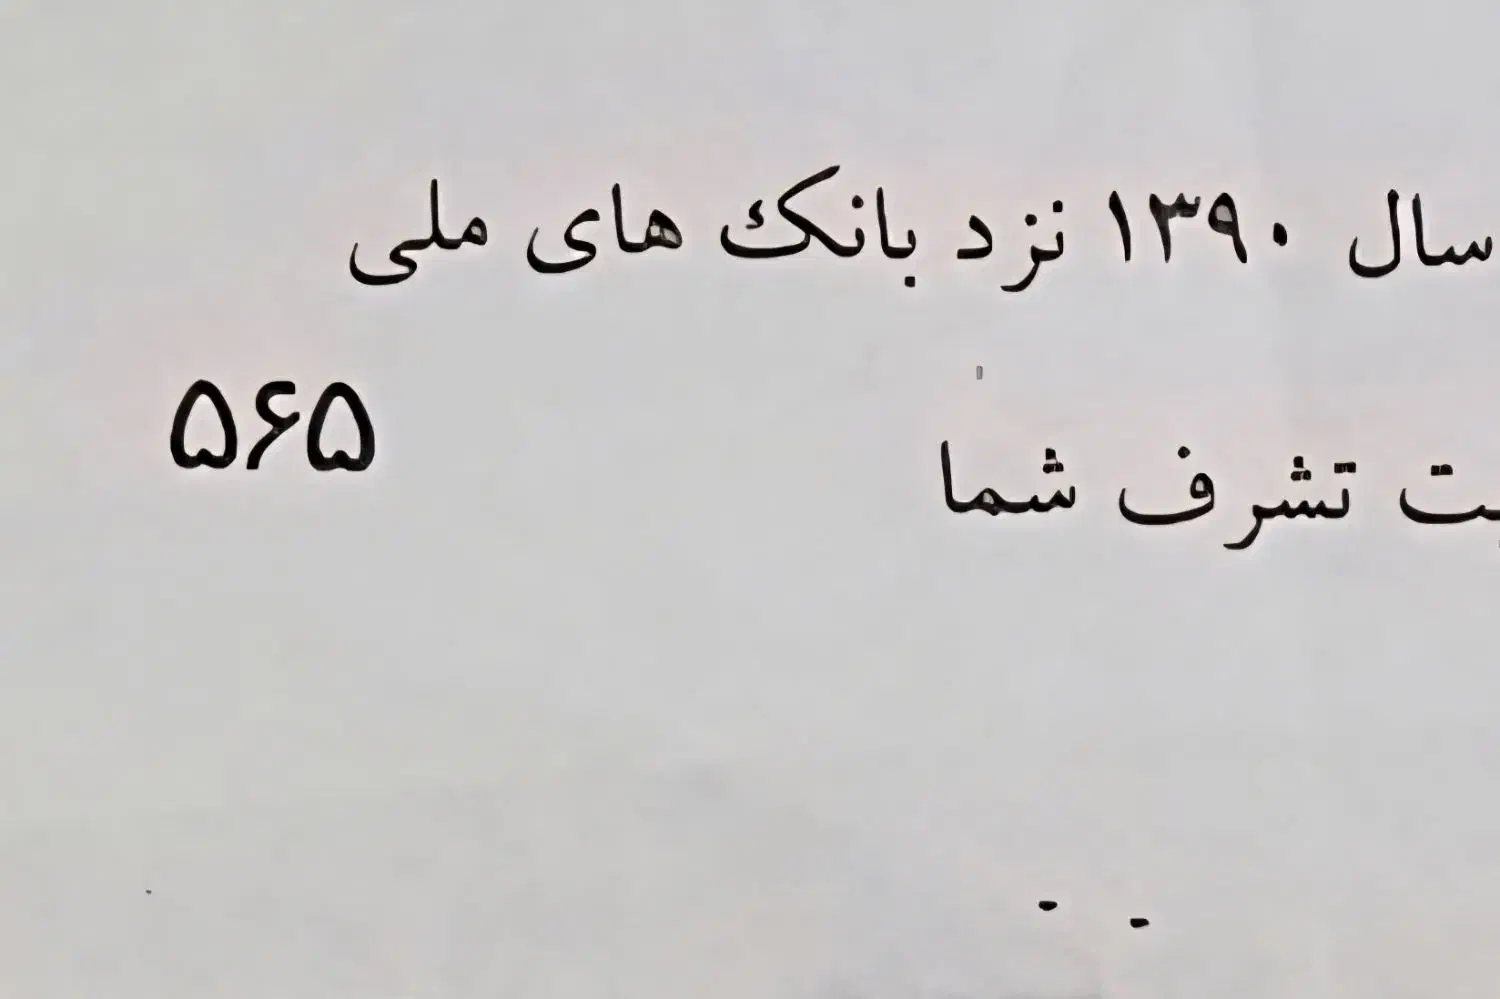 سال ۱۳۹۰ نزد بانک های ملی
۵۶۵
تشرف شما